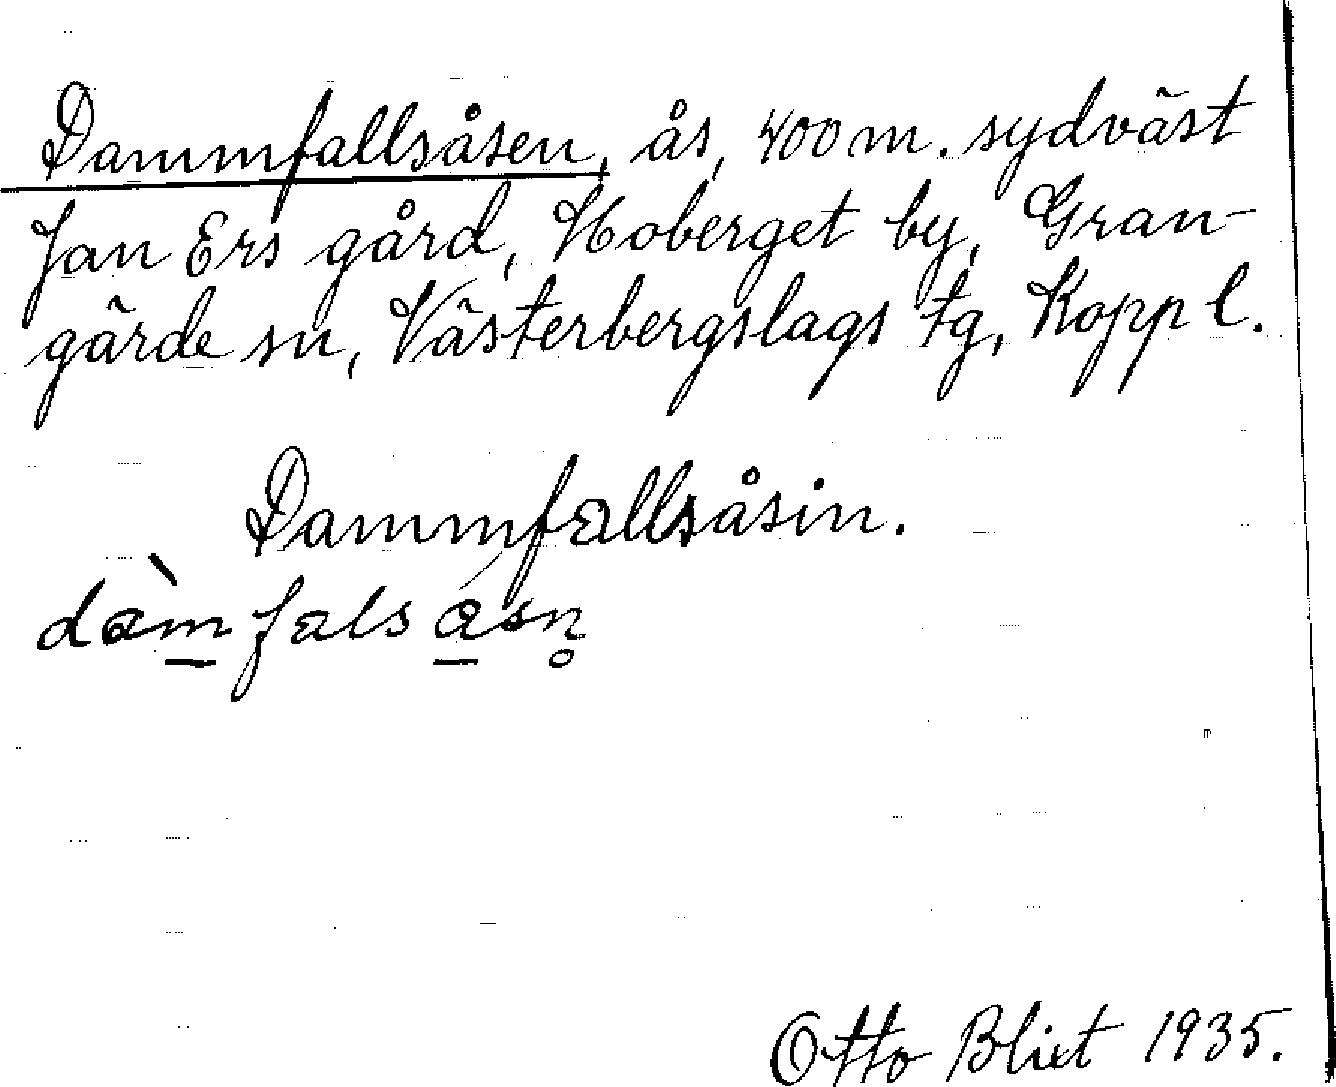 Dammfallsåsen, ås, 400 m. sydväst
Jan Ers gård, Hoberget by, Gran-
gärde sn, Västerbergslags tg, Kopp l.
Dammfallsåsin.
dàm̲fals á̲sn̥
Otto Blixt 1935.